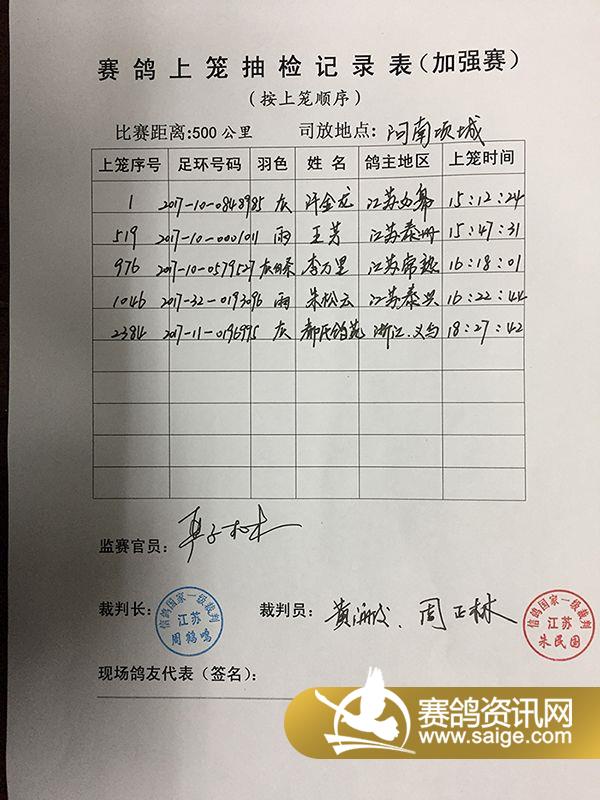 赛鸽上笼抽检记录表(加强赛)
(按上笼顺序)
比赛距离:500公里 司放地点: 河南项城
上笼序号 足环号码 羽色 姓名 鸽主地区 上笼时间
1 2017-10-0848985 灰 金龙 江苏 15:12:24
519 2017-10-0001011 雨 王芳 江苏泰州 15:47:31
976 2017-10-0579527 李万里 江苏常熟 16:18:01
1046 2017-32-0193096 雨 朱松云 江苏泰兴 16:22:44
2384 2017-11-0196995 灰 浙江.义乌 18:27:42
监赛官员:
裁判长: 裁判员: 黄 、周正林
信鸽国家一级裁判
江苏
周鹤鸣
信鸽国家一级裁判
江苏
朱民国
现场鸽友代表(签名):
赛鸽资讯网
www.saige.com